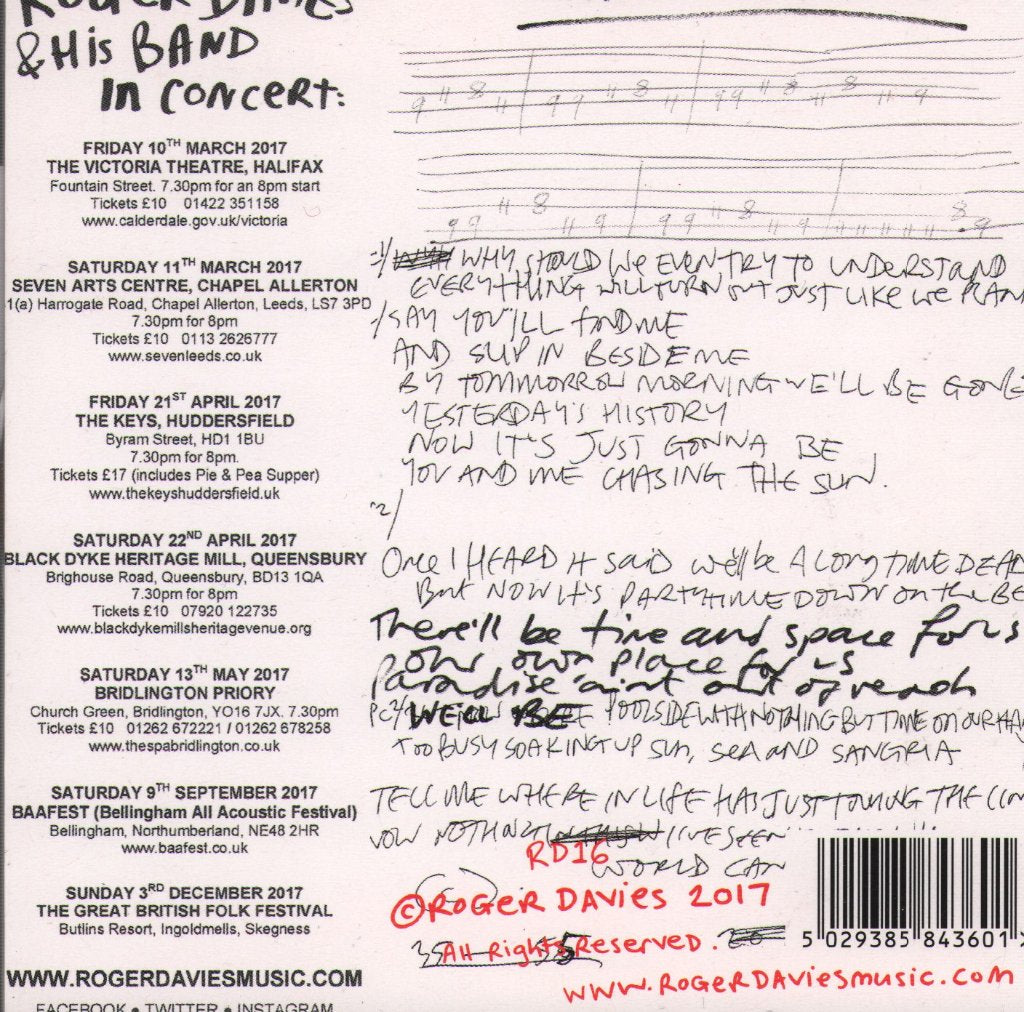 ROGER DAVIES
& HiS BAND
In CONCERT:
FRIDAY 10TH MARCH 2017
THE VICTORIA THEATRE, HALIFAX
Fountain Street. 7.30pm for an 8pm start
Tickets £10 01422 351158
www.calderdale.gov.uk/victoria
SATURDAY 11TH MARCH 2017
SEVEN ARTS CENTRE, CHAPEL ALLERTON
1(a) Harrogate Road, Chapel Allerton, Leeds, LS7 3PD
7.30pm for 8pm
Tickets £10 0113 2626777
www.sevenleeds.co.uk
FRIDAY 21ST APRIL 2017
THE KEYS, HUDDERSFIELD
Byram Street, HD1 1BU
7.30pm for 8pm.
Tickets £17 (includes Pie & Pea Supper)
www.thekeyshuddersfield.uk
SATURDAY 22ND APRIL 2017
BLACK DYKE HERITAGE MILL, QUEENSBURY
Brighouse Road, Queensbury, BD13 1QA
7.30pm for 8pm
Tickets £10 07920 122735
www.blackdykemillsheritagevenue.org
SATURDAY 13TH MAY 2017
BRIDLINGTON PRIORY
Church Green, Bridlington, YO16 7JX. 7.30pm
Tickets £10 01262 672221 / 01262 678258
www.thespabridlington.co.uk
SATURDAY 9TH SEPTEMBER 2017
BAAFEST (Bellingham All Acoustic Festival)
Bellingham, Northumberland, NE48 2HR
www.baafest.co.uk
SUNDAY 3RD DECEMBER 2017
THE GREAT BRITISH FOLK FESTIVAL
Butlins Resort, Ingoldmells, Skegness
WWW.ROGERDAVIESMUSIC.COM
FACEBOOK • TWITTER • INSTAGRAM
9 11 8 11 9 9 11 8 11 9 9 11 8 11 8 11 9
9 9 11 8 11 9 9 9 11 8 11 9 11 11 11 11 11 8 9
WHY SHOULD WE EVEN TRY TO UNDERSTAND
EVERYTHING WILL TURN OUT JUST LIKE WE PLAN
SAY YOU'LL FIND ME
AND SLIP IN BESIDE ME
BY TOMMORROW MORNING WE'LL BE GONE
YESTERDAY'S HISTORY
NOW IT'S JUST GONNA BE
YOU AND ME CHASING THE SUN.
2/
Once I HEARD it said we'll be A Long TIME DEAD
But NOW it's PARTYTIME DOWN on the BE
There'll be time and space for us
our own place for us
Paradise 'aint out of reach
WE'LL BE POOLSIDE WITH NOTHING BUT TIME ON OUR HA
TOO BUSY SOAKING UP SUN, SEA AND SANGRIA
TELL ME WHERE IN LIFE HAS JUST TOUCHING THE
NOW NOTHING I'VE SEEN
WORLD CAN
RD16
© ROGER DAVIES 2017
All Rights Reserved.
5 029385 843601 >
www.ROGERDAVIESmusic.com